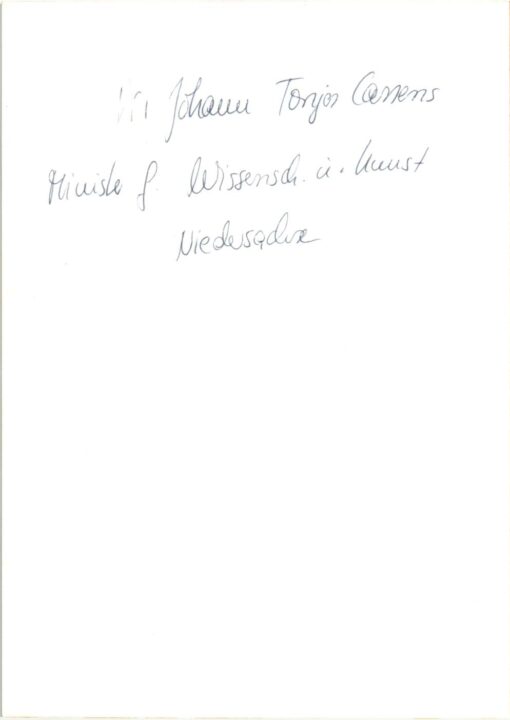 Johann Tonjes Cassens
Minister f. Wissensch. u. Kunst
Niedersachsen